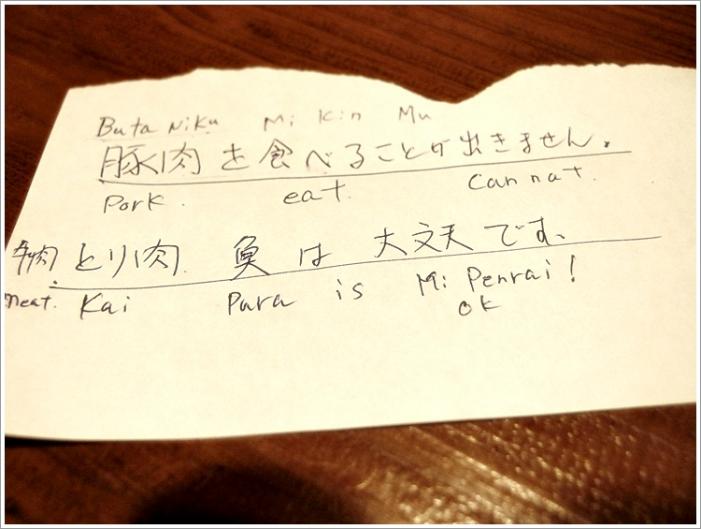 Buta Niku Mi Kin Mu
豚肉を食べることが出きません。
Pork. eat. Can not.
牛肉 とり肉 魚は 大丈夫です、
meat. Kai Para is Mi Penrai!
OK